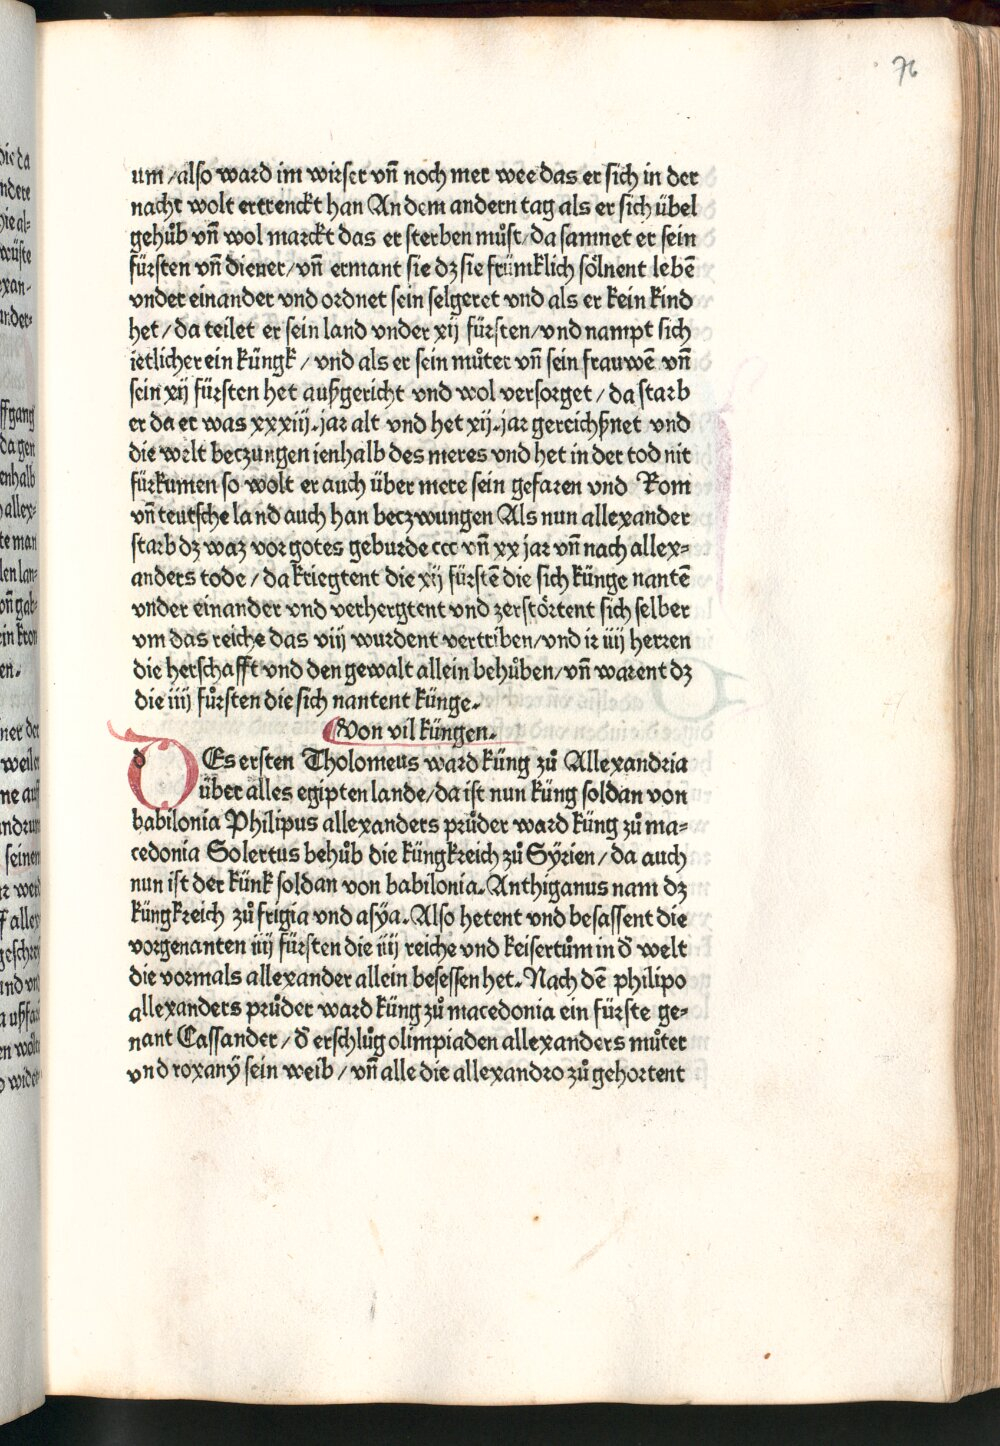 76
um /also ward im wirser vn̄ noch mer wee das er sich in der
nacht wolt ertrenckt han An dem andern tag als er sich übel
gehůb vn̄ wol marckt das er sterben můst/da samnet er sein
fürsten vn̄ diener/vn̄ ermant sie dz sie frümklich sölnent lebē
vnder einander vnd ordnet sein selgeret vnd als er kein kind
het/da teilet er sein land vnder xij fürsten/vnd nampt sich
ietlicher ein küngk/vnd als er sein můter vn̄ sein frauwē vn̄
sein xij fürsten het außgericht vnd wol versorget/da starb
er da er was xxxiij.jar alt vnd het xij.jar gereichßnet vnd
die welt beczungen ienhalb des meres vnd het in der tod nit
fürkumen so wolt er auch über mere sein gefaren vnd Rom
vn̄ teutsche land auch han beczwungen Als nun allexander
starb dz waz vor gotes geburde ccc vn̄ xx jar vn̄ nach allex=
anders tode/da kriegtent die xij fürstē die sich künge nantē
vnder einander vnd verhergtent vnd zerstörtent sich selber
vm das reiche das viij wurdent vertriben/vnd ir iiij herren
die herschafft vnd den gewalt allein behůben/vn̄ warent dz
die iiij fůrsten die sich nantent künge.
Von vil küngen.
d Es ersten Tholomeus ward küng zů Allexandria
über alles egipten lande/da ist nun küng soldan von
babilonia Philipus allexanders průder ward küng zů ma=
cedonia Solertus behůb die küngkreich zů Sÿrien/da auch
nun ist der künk soldan von babilonia.Anthiganus nam dz
küngkreich zů frigia vnd asÿa.Also hetent vnd besassent die
vorgenanten iiij fürsten die iiij reiche vnd keisertům in d̄ welt
die vormals allexander allein besessen het.Nach dē philipo
allexanders průder ward küng zů macedonia ein fürste ge=
nant Cassander/d̄ erschlůg olimpiaden allexanders můter
vnd roxanÿ sein weib/vn̄ alle die allexandro zů gehortent